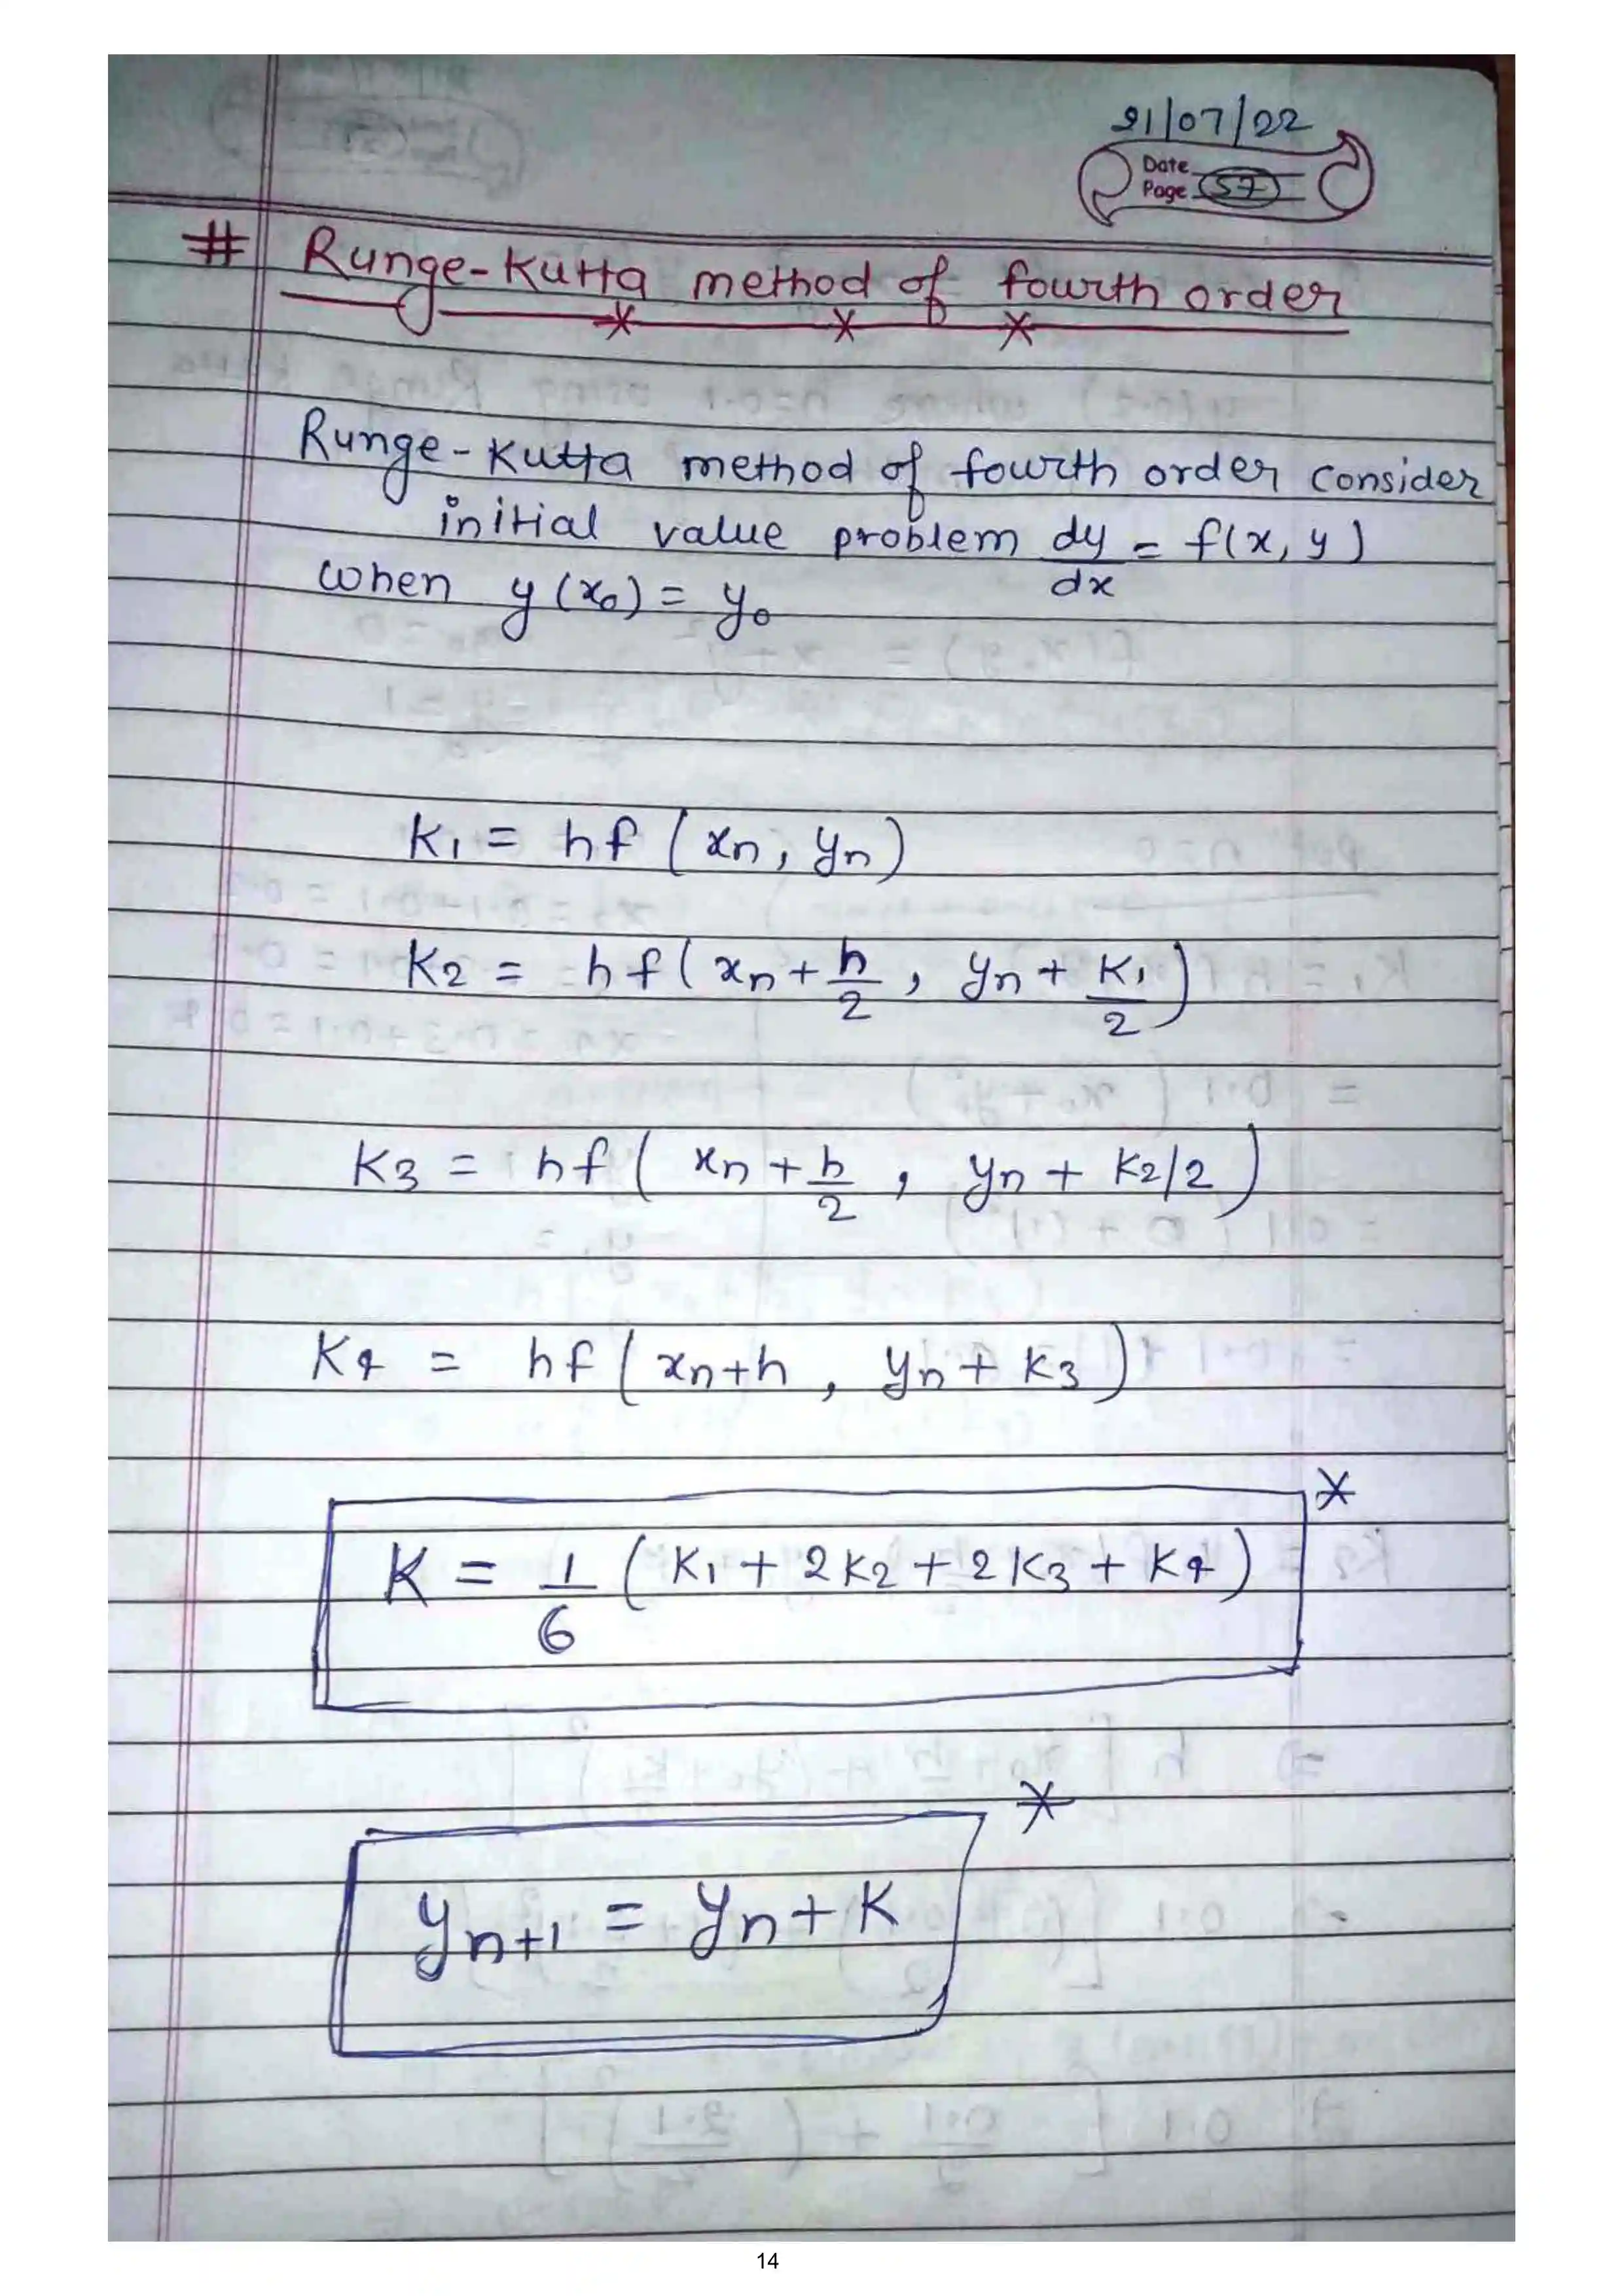 21/07/22
Date
Page 57
# Runge-Kutta method of fourth order
Runge-Kutta method of fourth order consider
initial value problem dy/dx = f(x, y)
when y(x₀) = y₀
K₁ = hf (xₙ, yₙ)
K₂ = hf (xₙ + h/2, yₙ + K₁/2)
K₃ = hf (xₙ + h/2, yₙ + K₂/2)
K₄ = hf (xₙ+h, yₙ + K₃)
K = 1/6 (K₁ + 2K₂ + 2K₃ + K₄) *
yₙ₊₁ = yₙ + K *
14